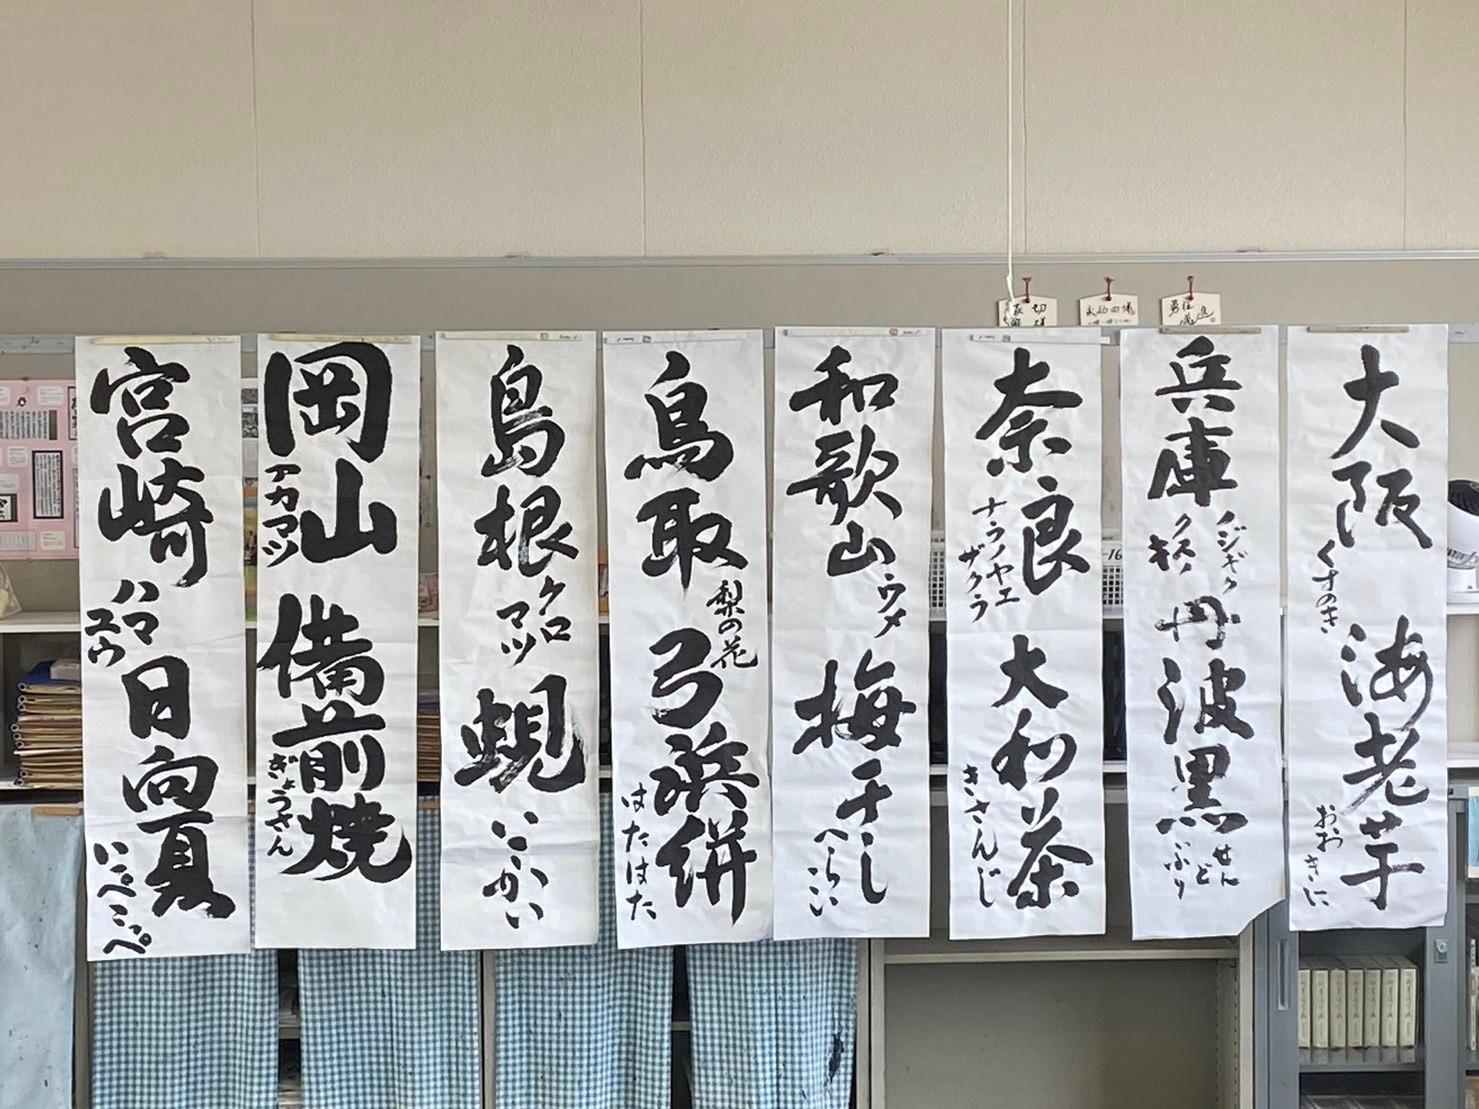 大阪
くすのき
海老芋
おおきに
兵庫
ノジギク
クスノキ
丹波黒
せんど
ぶり
奈良
ナラノヤエ
ザクラ
大和茶
きさんじ
和歌山
ウメ
梅干し
へらこい
鳥取
梨の花
弓浜絣
はたはた
島根
クロマツ
蜆
いこかい
岡山
アカマツ
備前焼
ぎょうさん
宮崎
ハマユウ
日向夏
いっぺこっぺ